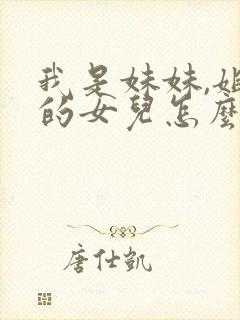 我是妹妹,姐
的女兒怎麼
唐仕凱